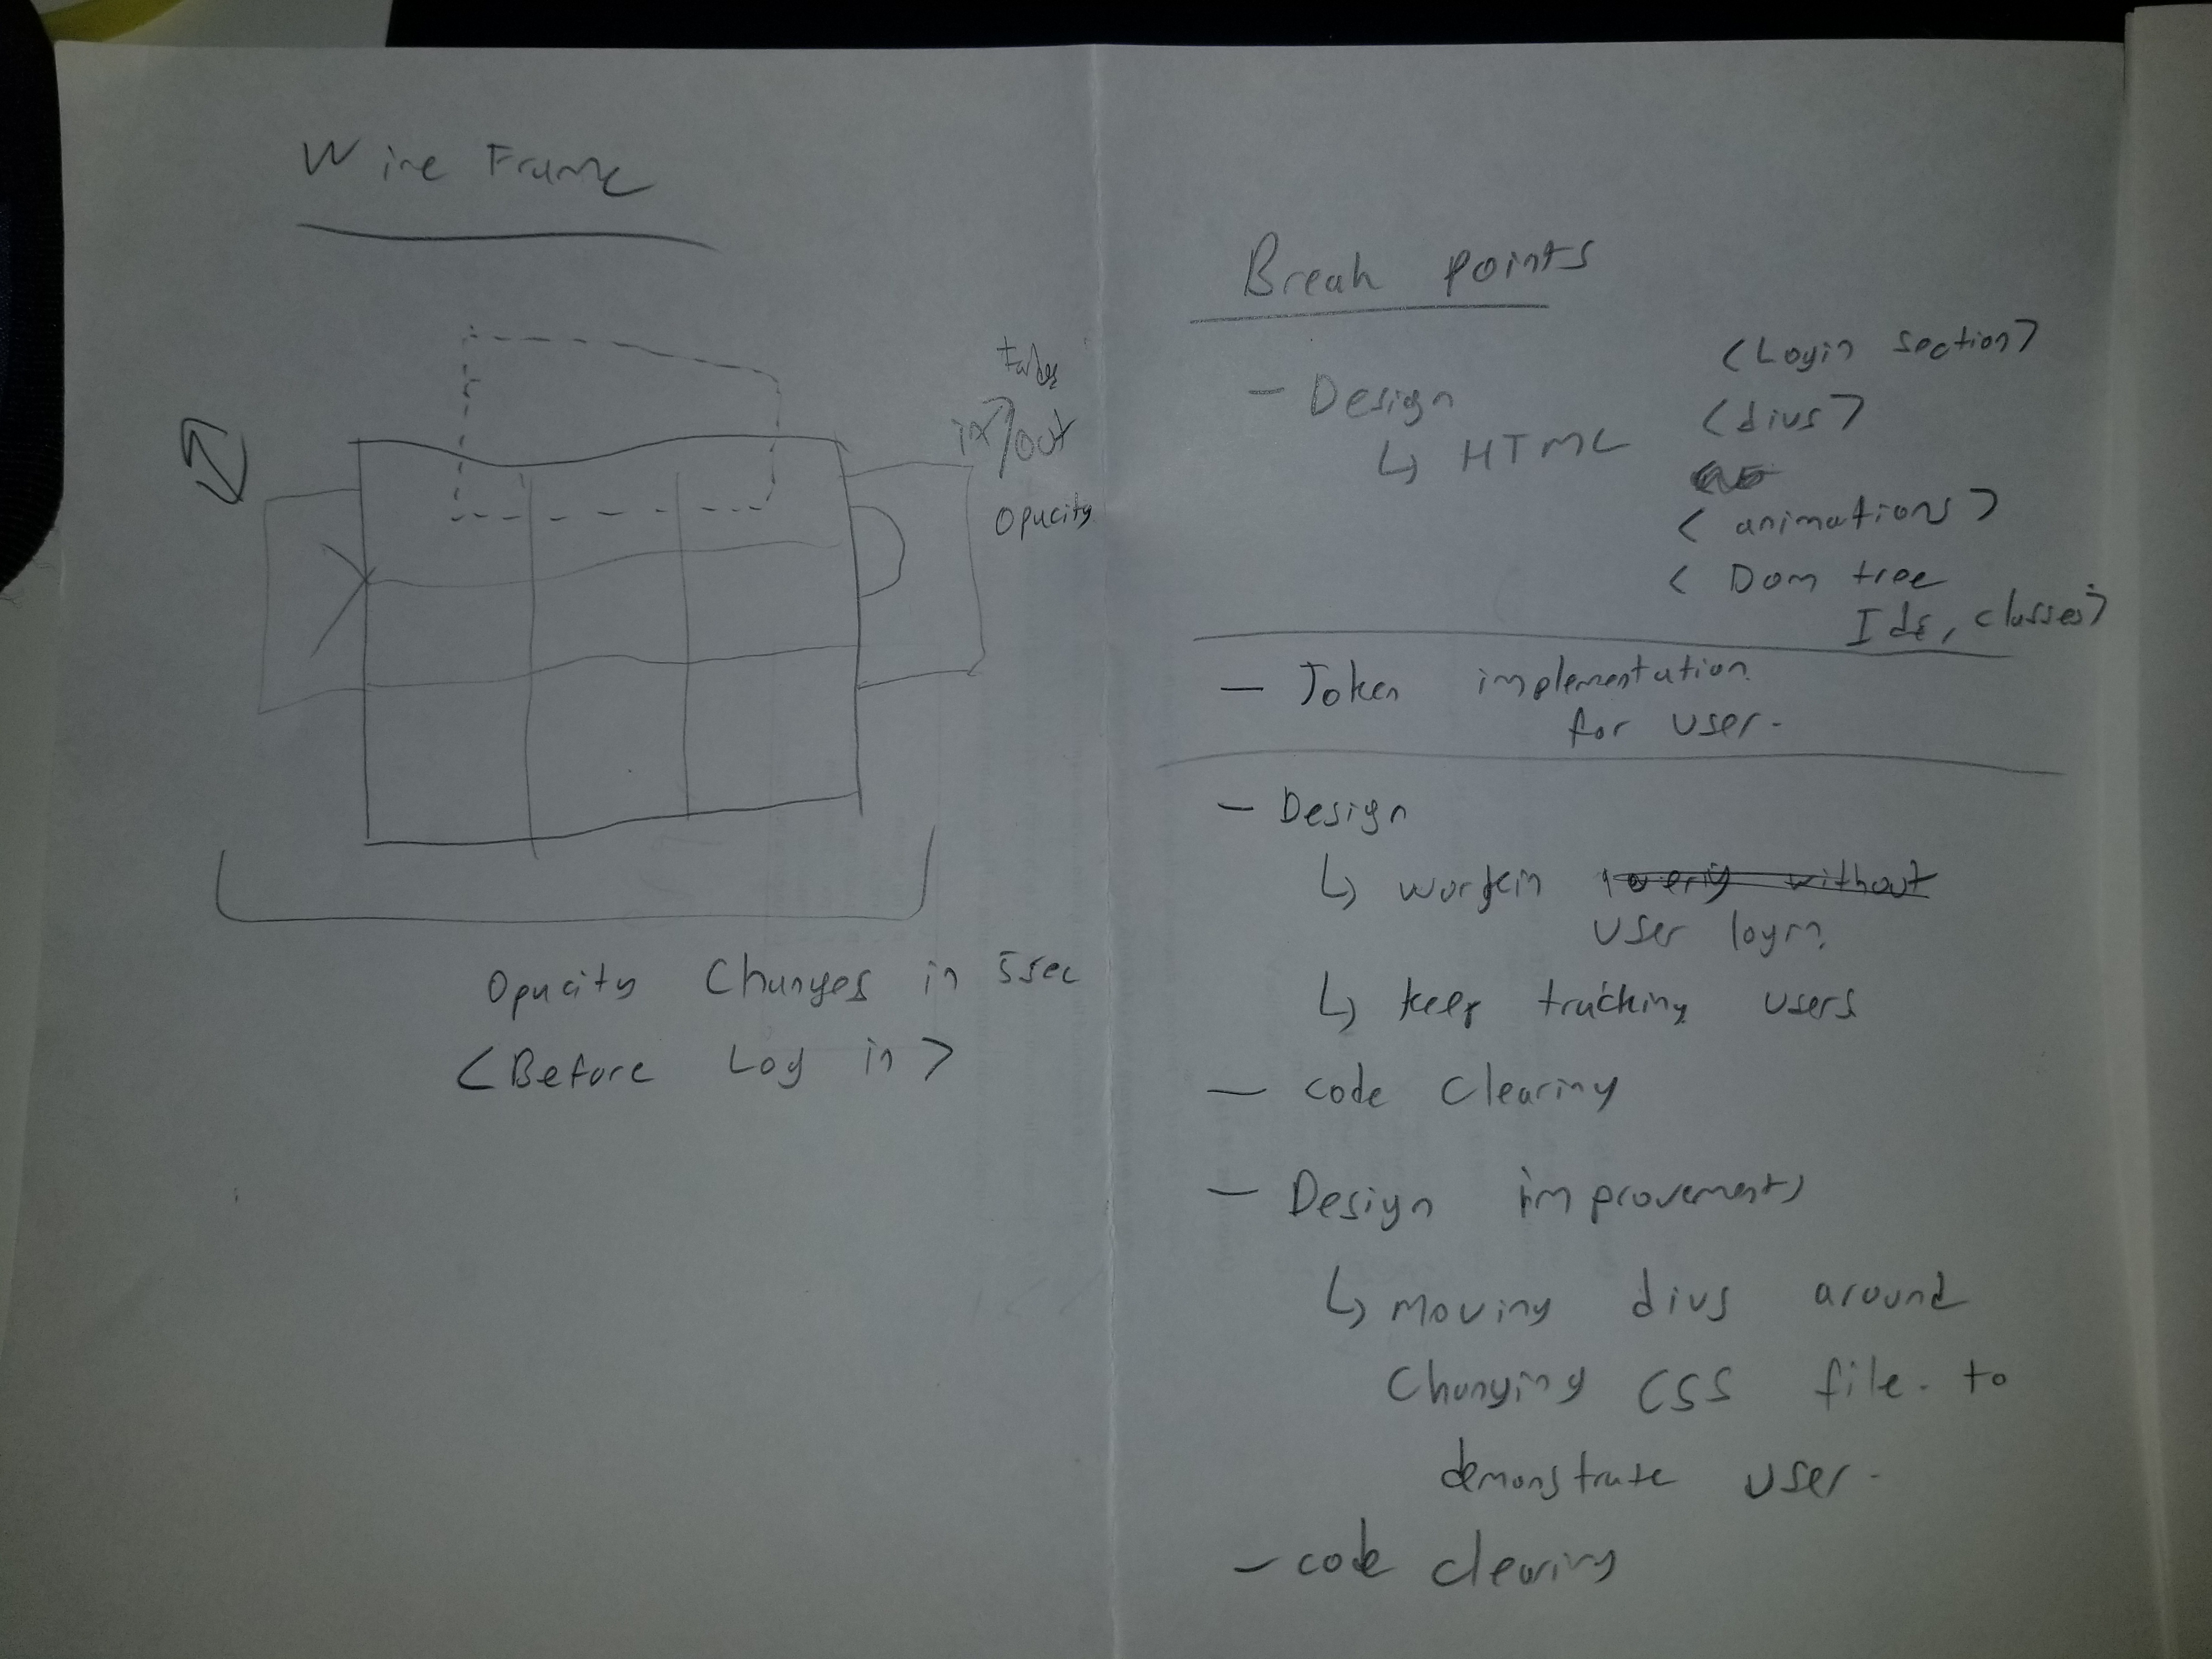 Wire Frame
in/out
Opacity
Opacity Changes in 5sec
<Before Log in>
Break points
- Design
↳ HTML
<Login section>
<divs>
<animations>
< Dom tree
Ids, classes>
- Token implementation
for user.
- Design
↳ workin without
user login
↳ keep tracking users
- code clearing
- Design improvements
↳ moving divs around
Changing CSS file. to
demonstrate user.
- code clearing